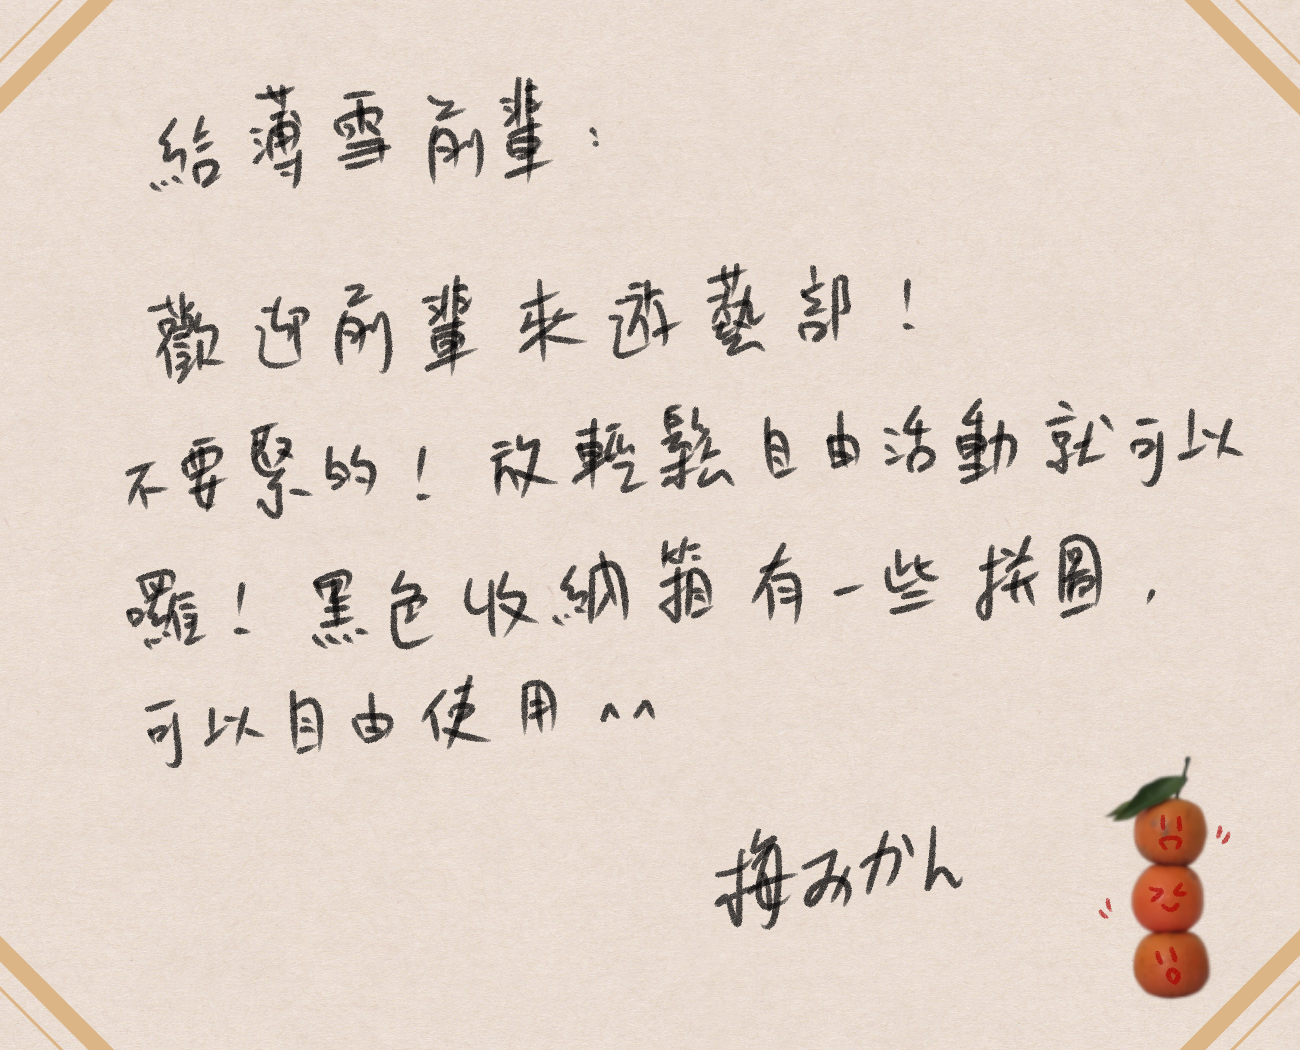 給薄雪前輩：
歡迎前輩來遊藝部！
不要緊的！放輕鬆自由活動就可以
囉！黑色收納箱有一些拼圖，
可以自由使用^^
梅みかん